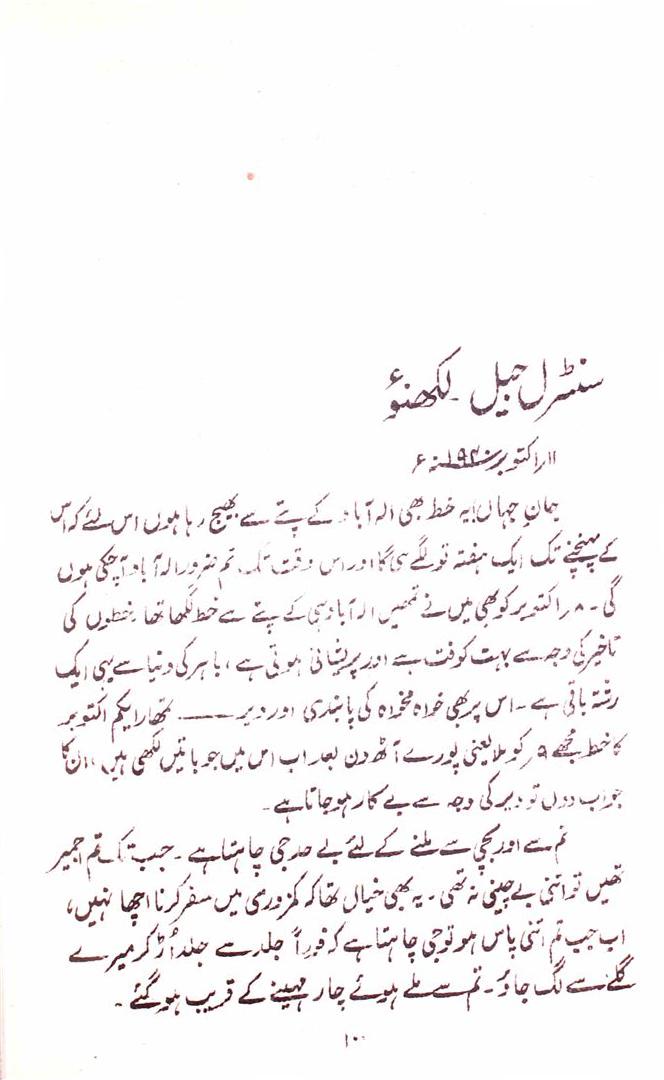 سنٹرل جیل۔ لکھنؤ
۱۱؍ اکتوبر ۱۹۴۰ء
جانِ جہاں! یہ خط بھی الہ آباد کے پتے سے بھیج رہا ہوں اس لئے کہ اس
کے پہنچنے تک ایک ہفتہ تو لگے ہی گا اور اس وقت تک تم ضرور الہ آباد آ چکی ہوں
گی۔ ۸؍ اکتوبر کو بھی میں نے تمھیں الہ آباد ہی کے پتے سے خط لکھا تھا۔ خطوں کی
تاخیر کی وجہ سے بہت کوفت ہے اور پریشانی ہوتی ہے، باہر کی دنیا سے یہی ایک
رشتہ باقی ہے۔ اس پر بھی خواہ مخواہ کی پابندی اور دیر —— تمھارا یکم اکتوبر
کا خط مجھے ۹؍ کو ملا یعنی پورے آٹھ دن بعد اب اس میں جو باتیں لکھی ہیں، ان کا
جواب دوں تو دیر کی وجہ سے بے کار ہو جاتا ہے۔
تم سے اور بچی سے ملنے کے لئے بے حد جی چاہتا ہے۔ جب تک تم اجمیر
تھیں تو اتنی بے چینی نہ تھی۔ یہ بھی خیال تھا کہ کمزوری میں سفر کرنا اچھا نہیں،
اب جب تم اتنی پاس ہو تو جی چاہتا ہے کہ فوراً جلد سے جلد اُڑ کر میرے
گلے سے لگ جاؤ۔ تم سے ملے ہوئے چار مہینے کے قریب ہو گئے۔
۱۰۰